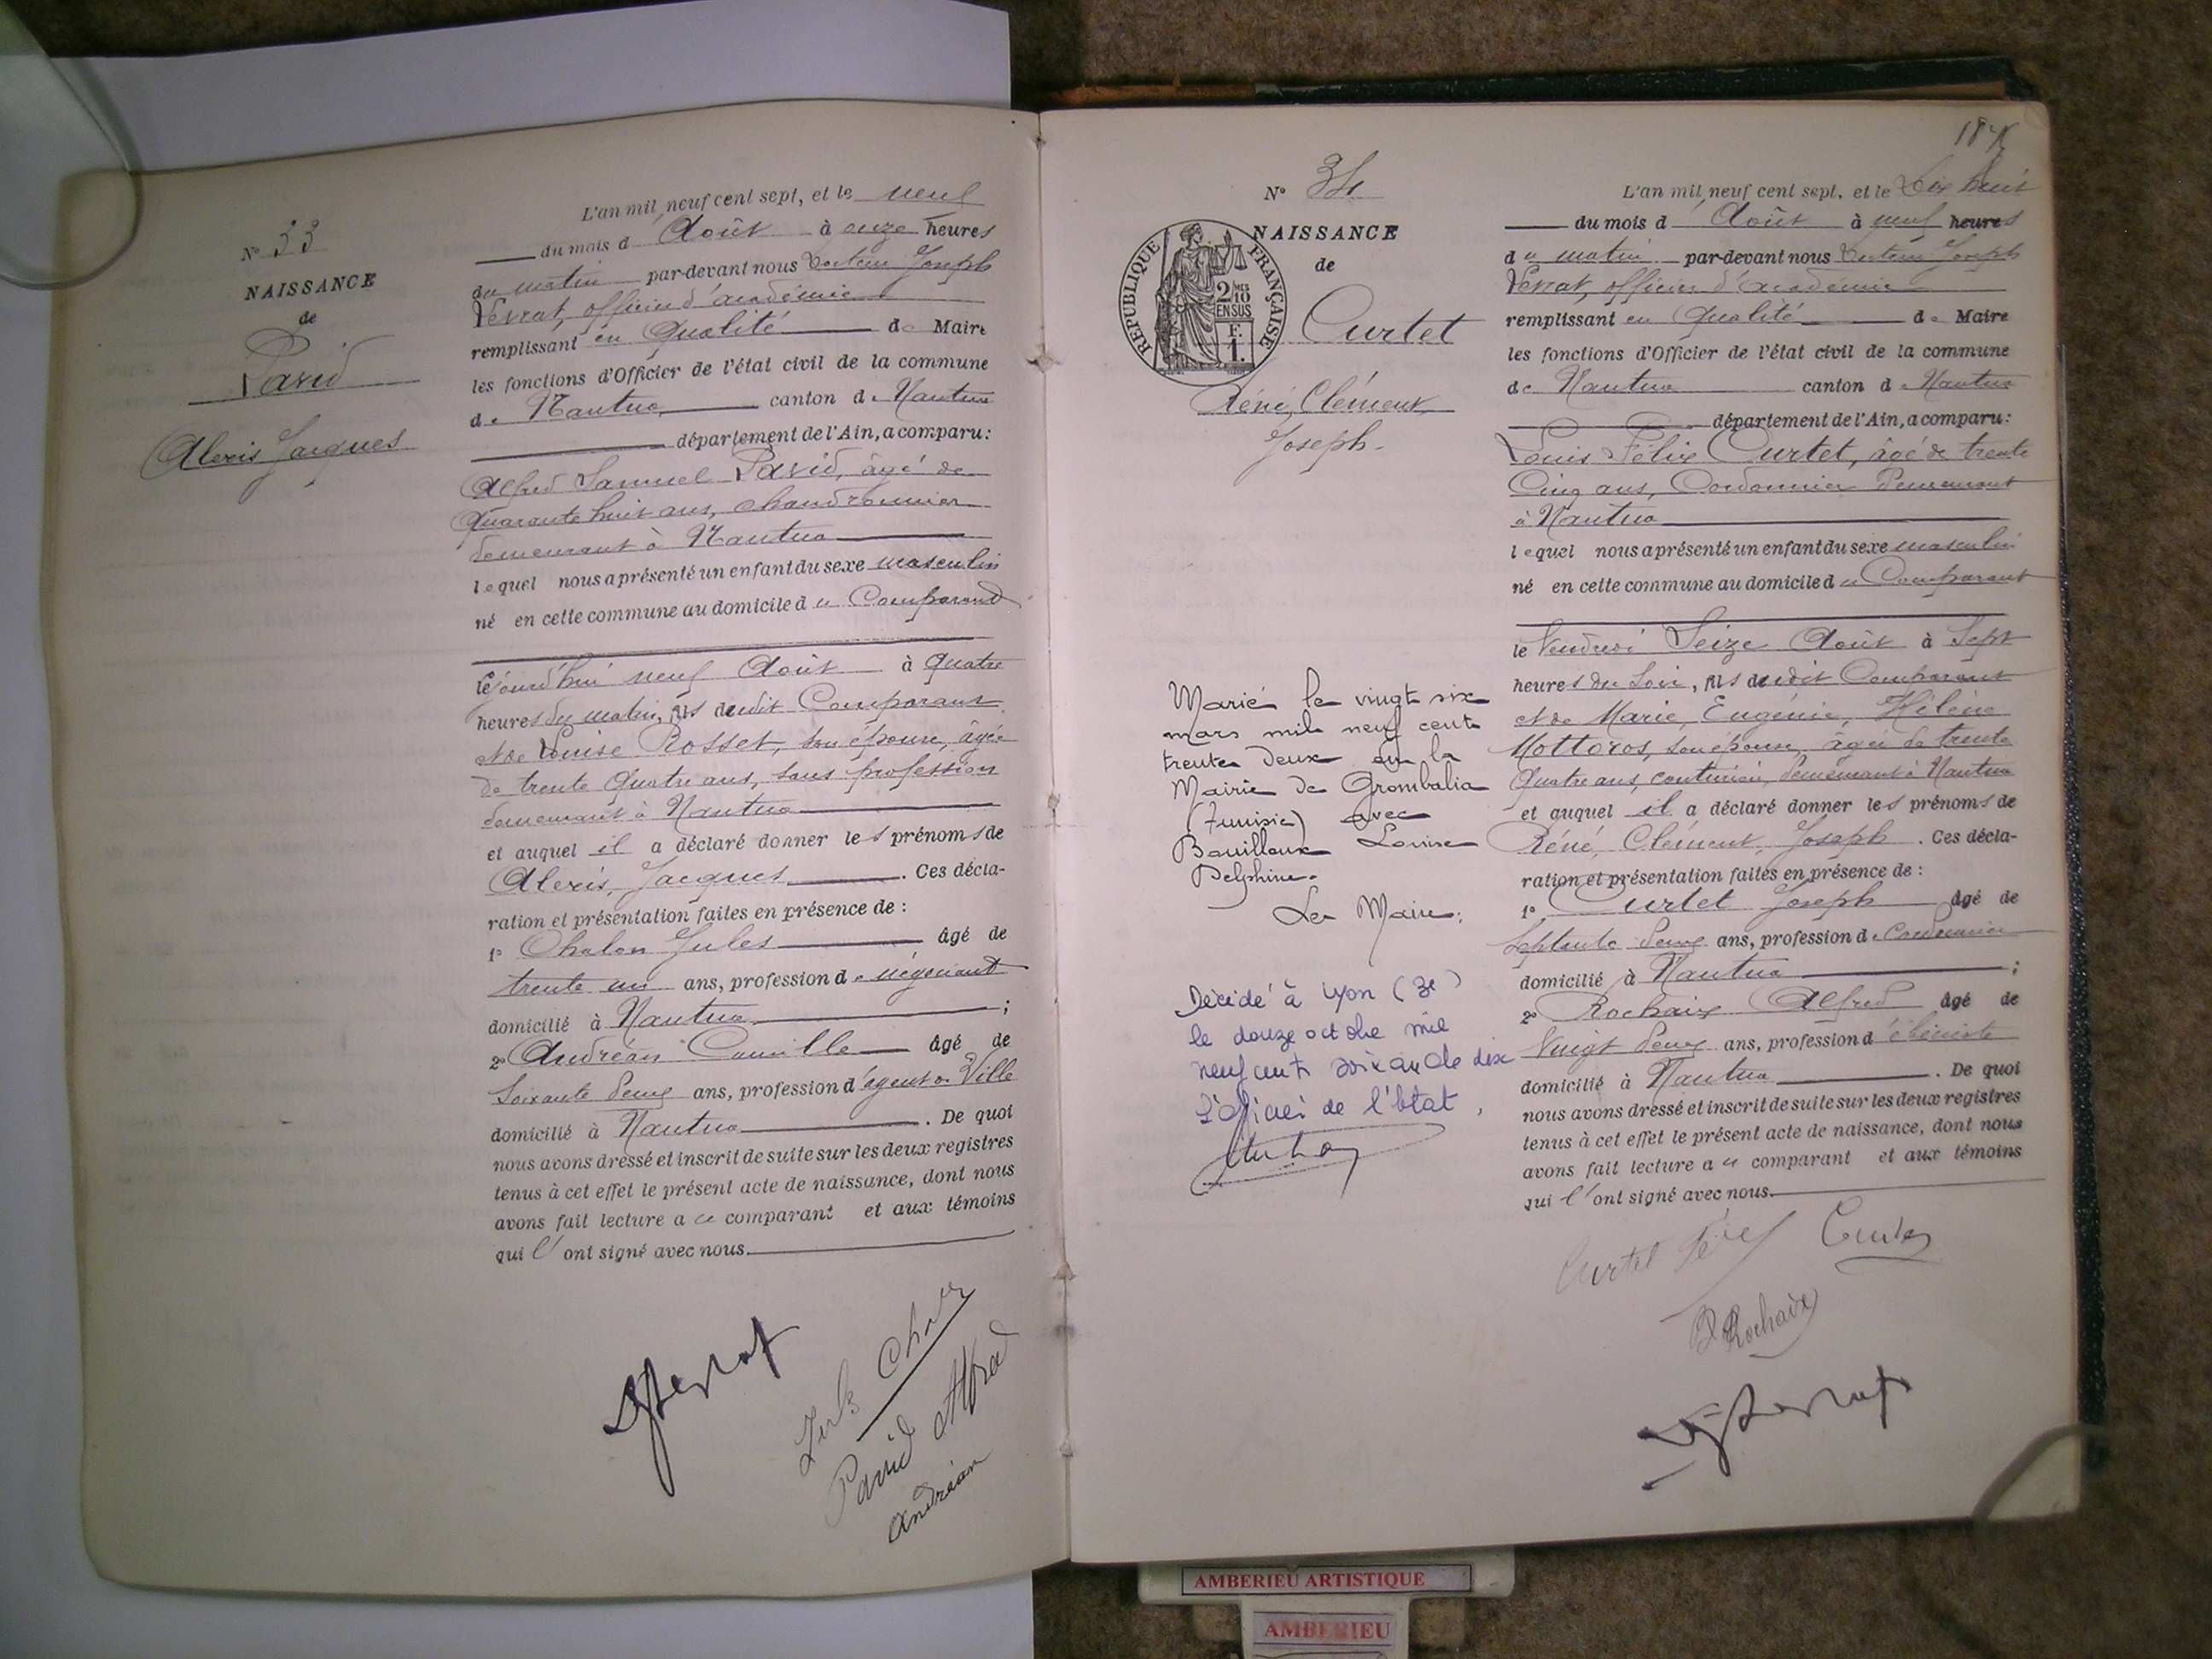 N° 33
NAISSANCE
de
David
Alexis Jacques
L'an mil neuf cent sept, et le neuf
du mois d'Août à onze heures
du matin par-devant nous Docteur Joseph
Verrat, officier d'académie
remplissant en qualité de Maire
les fonctions d'Officier de l'état civil de la commune
de Nantua canton de Nantua
département de l'Ain, a comparu:
Alfred Samuel David, âgé de
quarante huit ans, chaudronnier
demeurant à Nantua
lequel nous a présenté un enfant du sexe masculin
né en cette commune au domicile du Comparant
le jourd'hui neuf Août à quatre
heures du matin, fils dudit Comparant
et de Louise Rosset, son épouse, âgée
de trente quatre ans, sans profession
demeurant à Nantua
et auquel il a déclaré donner les prénoms de
Alexis, Jacques. Ces décla-
ration et présentation faites en présence de :
1° Chalon Jules âgé de
trente un ans, profession de négociant
domicilié à Nantua ;
2° Andréan Camille âgé de
soixante deux ans, profession d'agent de Ville
domicilié à Nantua. De quoi
nous avons dressé et inscrit de suite sur les deux registres
tenus à cet effet le présent acte de naissance, dont nous
avons fait lecture au comparant et aux témoins
qui l'ont signé avec nous.
Jules Chalon
David Alfred
Andréan
N° 34
NAISSANCE
de
REPUBLIQUE FRANÇAISE
2 MES
10
EN SUS
F.
1.
Curtet
Réné, Clément,
Joseph.
Marié le vingt six
mars mil neuf cent
trente deux en la
Mairie de Grombalia
(Tunisie) avec
Bouilloux Louise
Delphine.
Le Maire:
Décédé à Lyon (3e)
le douze octobre mil
neuf cent soixante dix
L'officier de l'état,
L'an mil neuf cent sept, et le Dix huit
du mois d'Août à neuf heures
du matin par-devant nous Docteur Joseph
Verrat, officier d'académie
remplissant en qualité de Maire
les fonctions d'Officier de l'état civil de la commune
de Nantua canton de Nantua
département de l'Ain, a comparu:
Louis Félix Curtet, âgé de trente
Cinq ans, Cordonnier Demeurant
à Nantua
lequel nous a présenté un enfant du sexe masculin
né en cette commune au domicile du Comparant
le Vendredi Seize Août à Sept
heures du Soir, fils dudit Comparant
et de Marie, Eugénie, Hélène
Mottoros, son épouse, âgée de trente
quatre ans, couturière, demeurant à Nantua
et auquel il a déclaré donner les prénoms de
Réné, Clément, Joseph. Ces décla-
ration et présentation faites en présence de :
1° Curtet Joseph âgé de
Septante deux ans, profession de Cordonnier
domicilié à Nantua ;
2° Rochaix Alfred âgé de
Vingt deux ans, profession d'ébéniste
domicilié à Nantua. De quoi
nous avons dressé et inscrit de suite sur les deux registres
tenus à cet effet le présent acte de naissance, dont nous
avons fait lecture au comparant et aux témoins
qui l'ont signé avec nous.
Curtet
Rochaix
AMBERIEU ARTISTIQUE
AMBERIEU